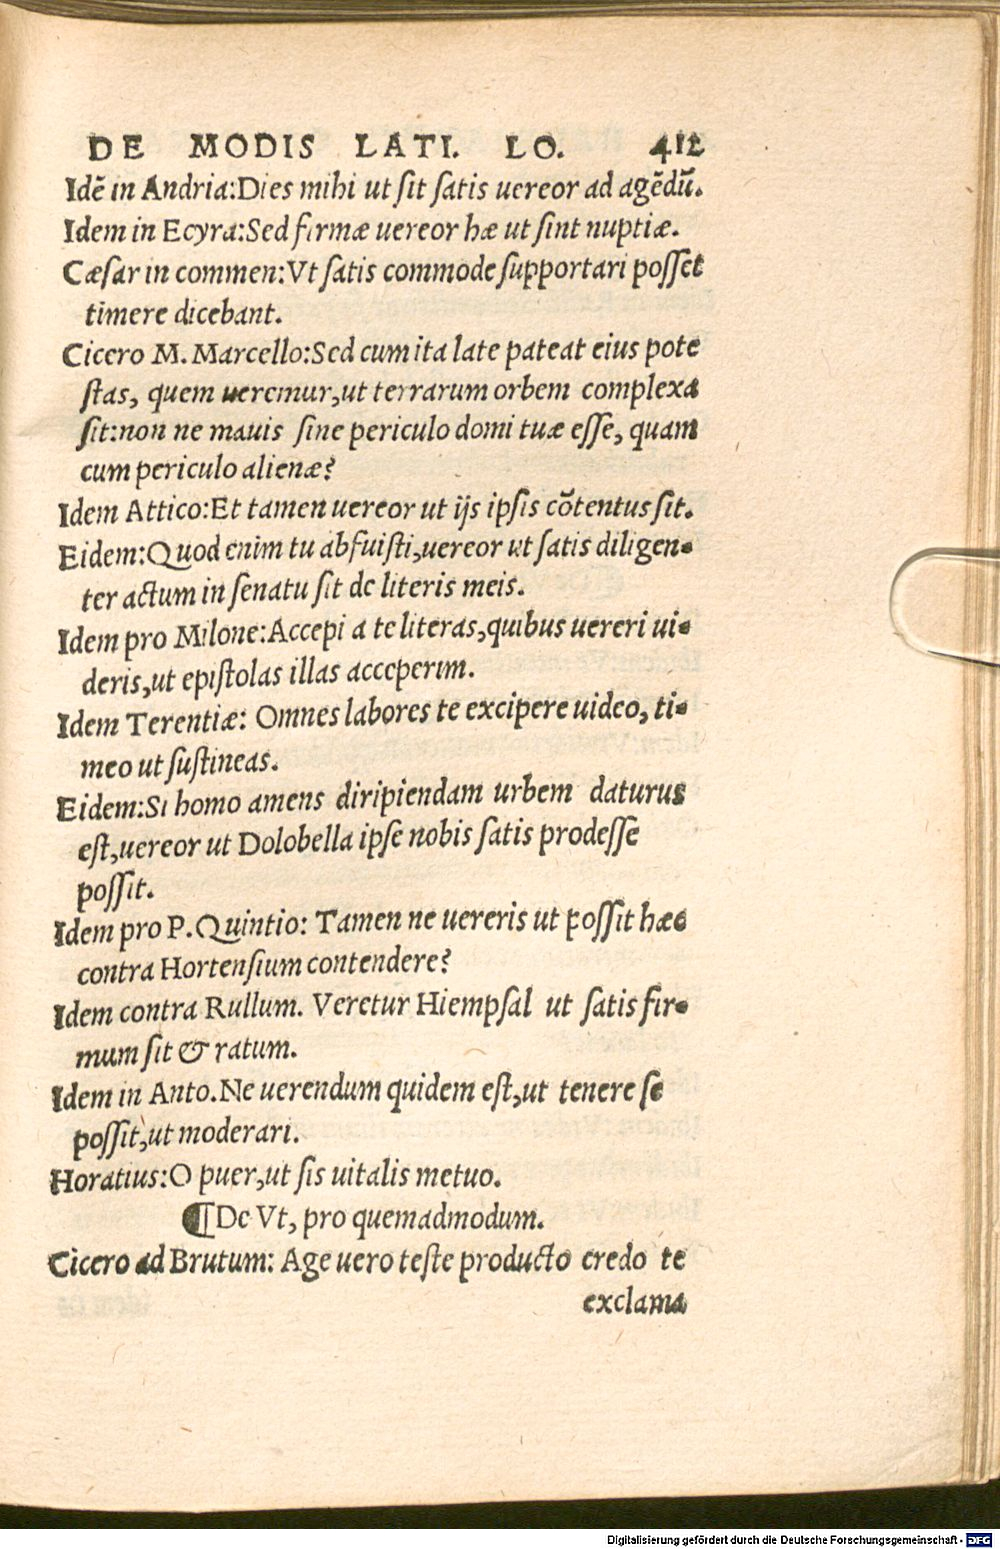 DE MODIS LATI. LO. 412
Idẽ in Andria:Dies mihi ut sit satis uereor ad agẽdũ.
Idem in Ecyra:Sed firmæ uereor hæ ut sint nuptiæ.
Cæsar in commen:Vt satis commode supportari posset
timere dicebant.
Cicero M. Marcello:Sed cum ita late pateat eius pote
stas, quem ueremur,ut terrarum orbem complexa
sit:non ne mauis sine periculo domi tuæ esse, quam
cum periculo alienæ?
Idem Attico:Et tamen uereor ut ijs ipsis cõtentus sit.
Eidem:Quod enim tu abfuisti,uereor ut satis diligen-
ter actum in senatu sit de literis meis.
Idem pro Milone:Accepi a te literas,quibus uereri ui-
deris,ut epistolas illas acceperim.
Idem Terentiæ: Omnes labores te excipere uideo, ti-
meo ut sustineas.
Eidem:Si homo amens diripiendam urbem daturus
est,uereor ut Dolobella ipse nobis satis prodesse
possit.
Idem pro P. Quintio: Tamen ne uereris ut possit hæc
contra Hortensium contendere?
Idem contra Rullum. Veretur Hiempsal ut satis fir-
mum sit & ratum.
Idem in Anto.Ne uerendum quidem est,ut tenere se
possit,ut moderari.
Horatius:O puer,ut sis uitalis metuo.
¶De Vt, pro quemadmodum.
Cicero ad Brutum: Age uero teste producto credo te
exclama
Digitalisierung gefördert durch die Deutsche Forschungsgemeinschaft - DFG